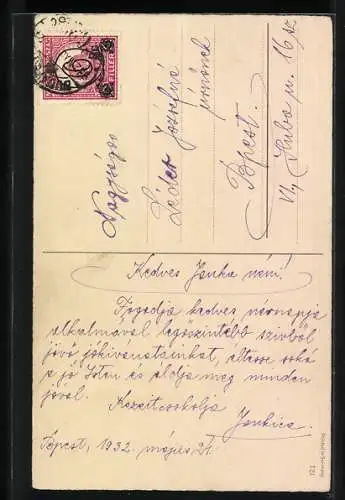 Nagyságos
Léder Józsefné
úrnőnek
Bpest.
VII, Huba u. 16 sz
Kedves Janka néni!
Fogadja kedves névnapja
alkalmával legőszintébb szívből
jövő jókivánatainkat, éltesse soká
a jó Isten és áldja meg minden
jóval.
Kezeitcsokolja
Jankica
Bpest, 1932. május 21.
FILLÉR
121